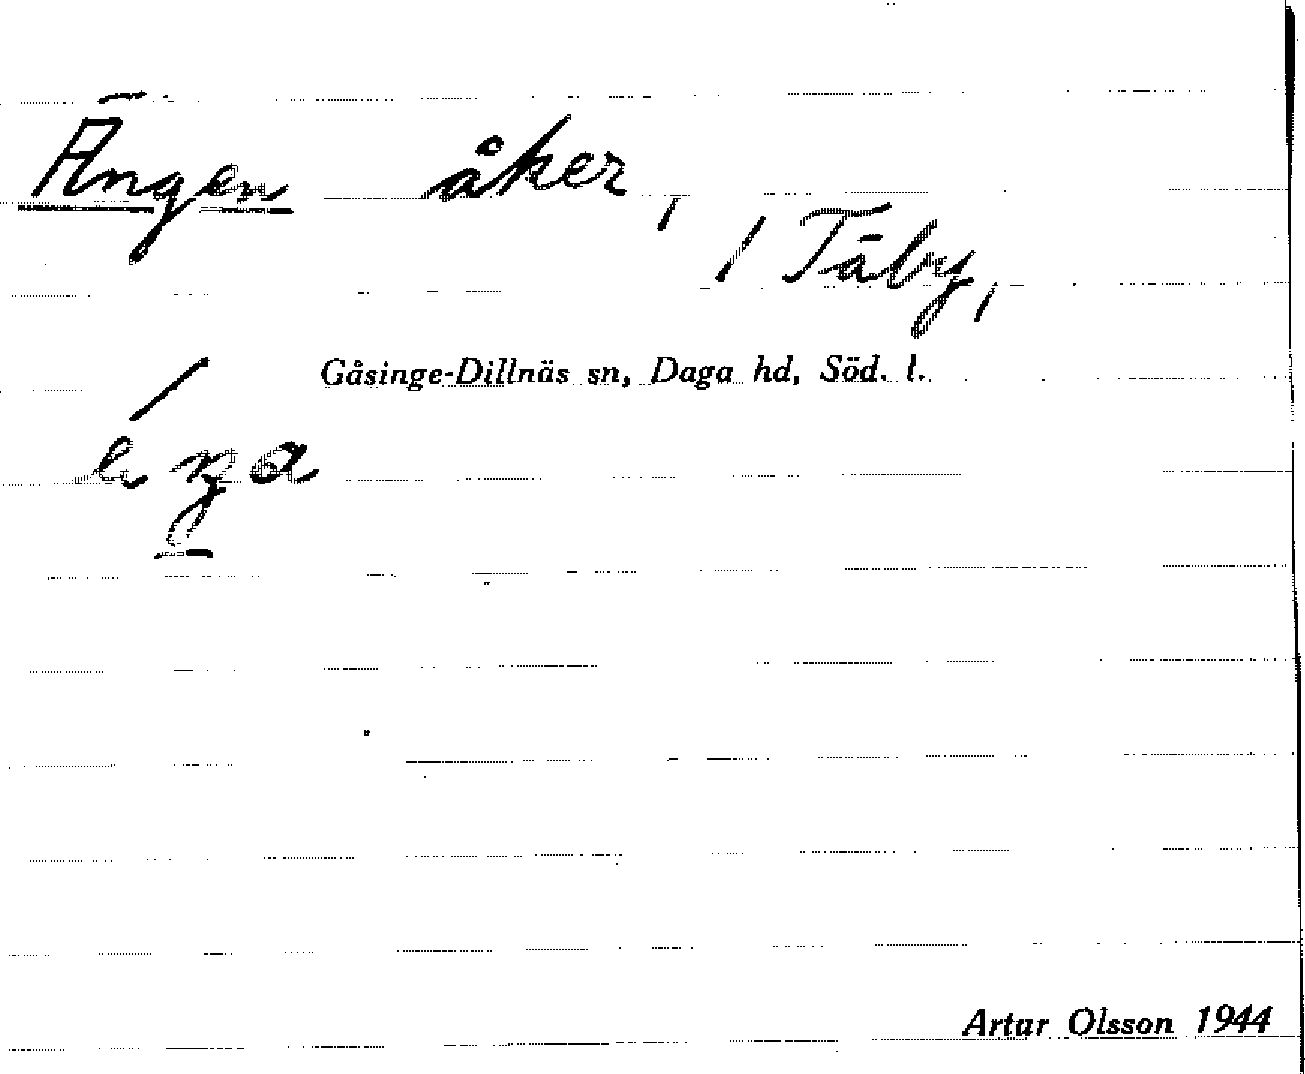 Ängen åker,
/ Täby,
Gåsinge-Dillnäs sn, Daga hd, Söd. l.
Artur Olsson 1944